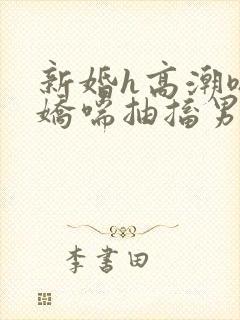 新婚h高潮
娇喘抽搐男
李書田